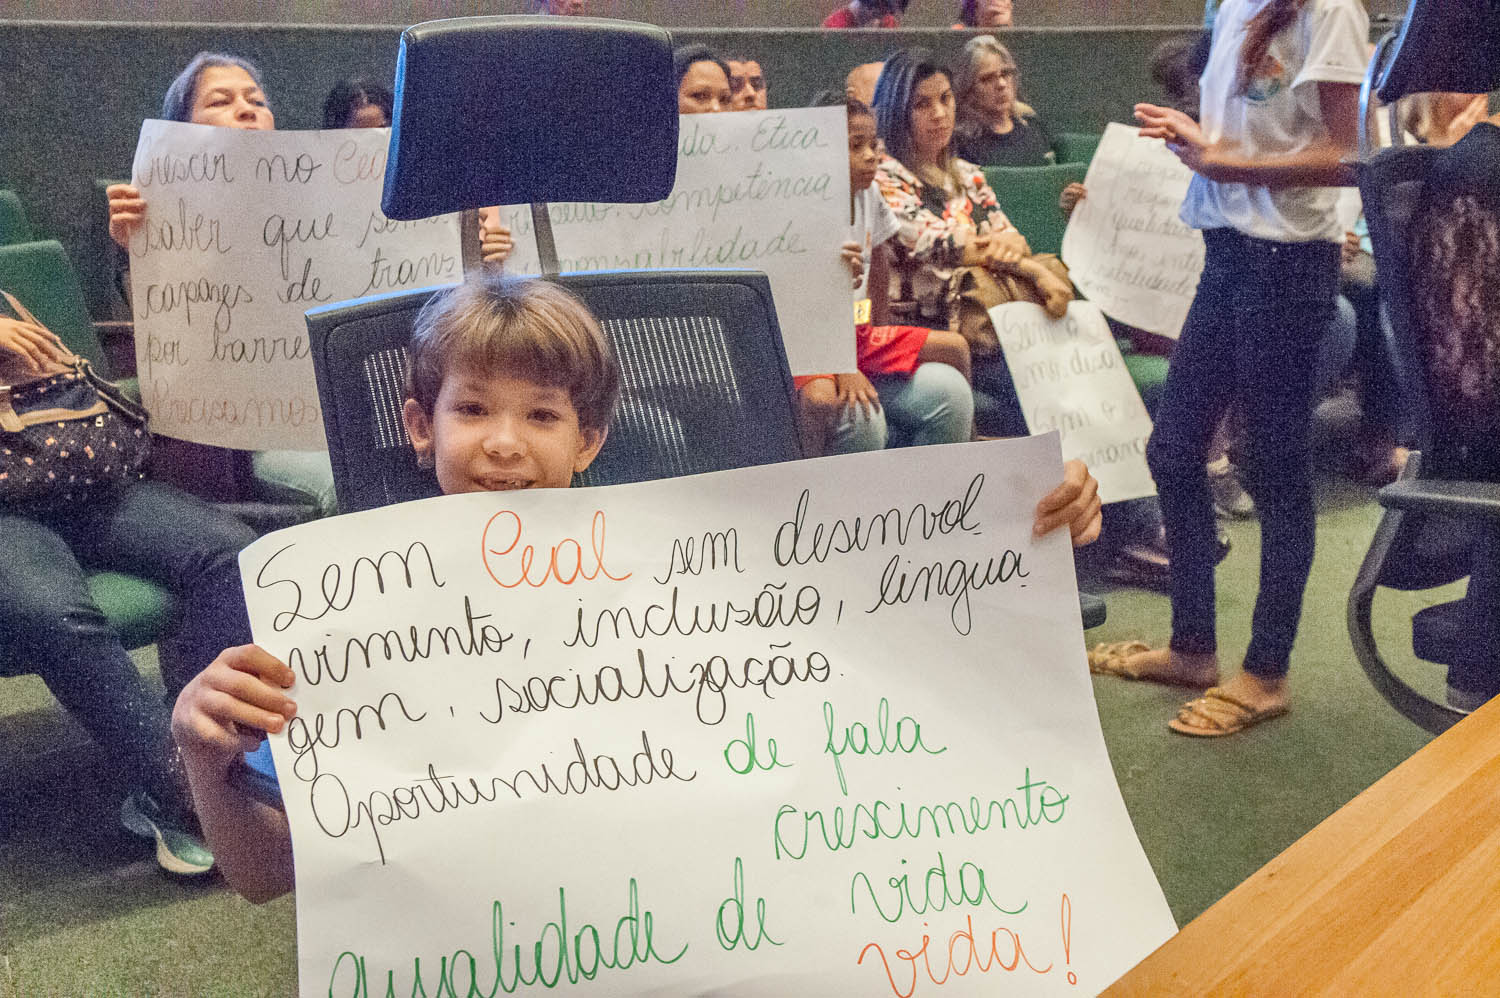 Crescer no Ceal
saber que somos
capazes de trans
por barre
Precisamos
Ética
Competência
responsabilidade
qualidade
Sem o
Sem o
Sem Ceal sem desenvol-
vimento, inclusão, lingua-
gem, socialização.
Oportunidade de fala
crescimento
qualidade de vida
vida!